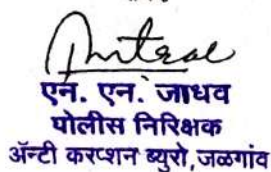 एन. एन. जाधव
पोलीस निरिक्षक
ॲन्टी करप्शन ब्युरो,जळगांव